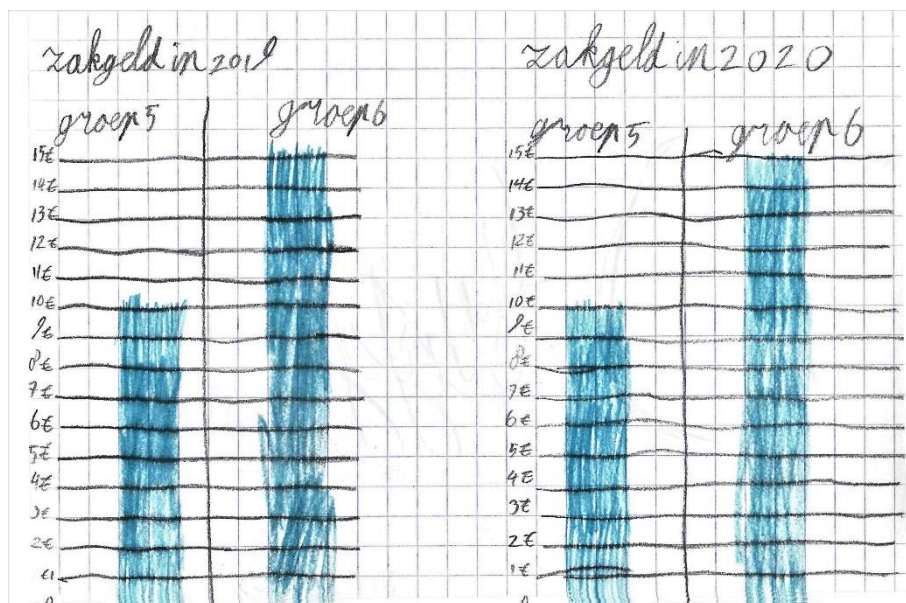 zakgeld in 2019
groep 5 groep 6
15€
14€
13€
12€
11€
10€
9€
8€
7€
6€
5€
4€
3€
2€
€1
zakgeld in 2020
groep 5 groep 6
15€
14€
13€
12€
11€
10€
9€
8€
7€
6€
5€
4€
3€
2€
1€